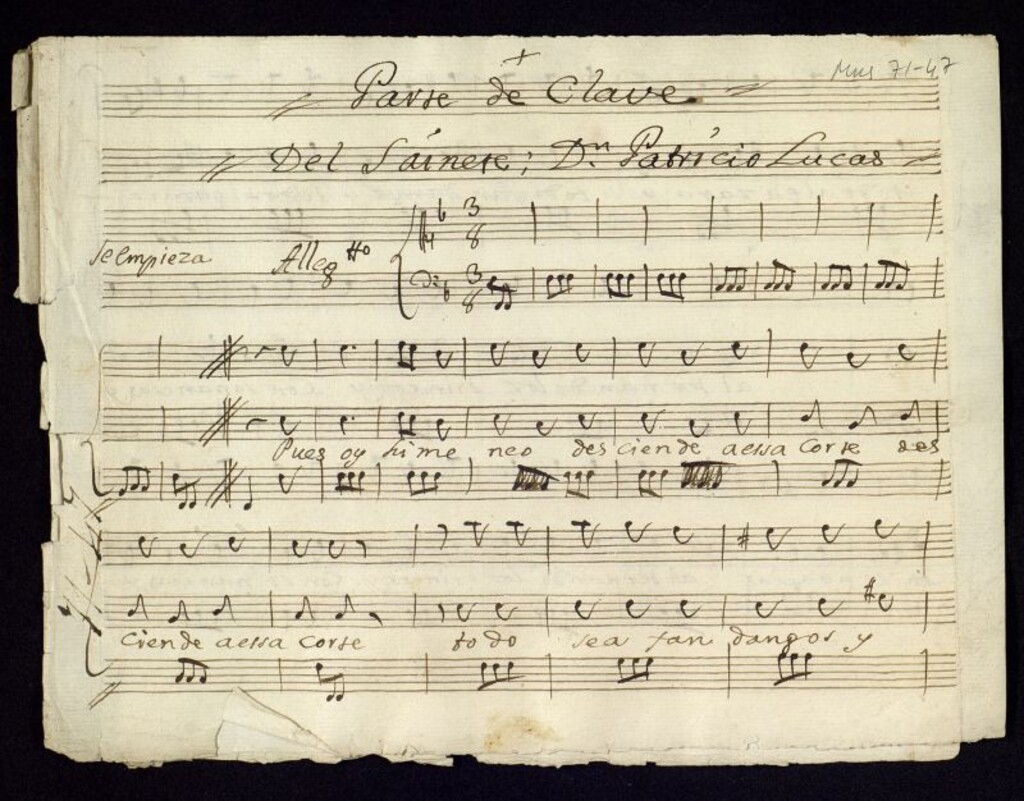 Mus 71-47
Parte de Clave
Del Sainete; Dn. Patricio Lucas
Se empieza Allegtto 3 8
3 8
Pues oy hime neo des ciende aessa Corte des
ciende aessa Corte to do sea fan dangos y